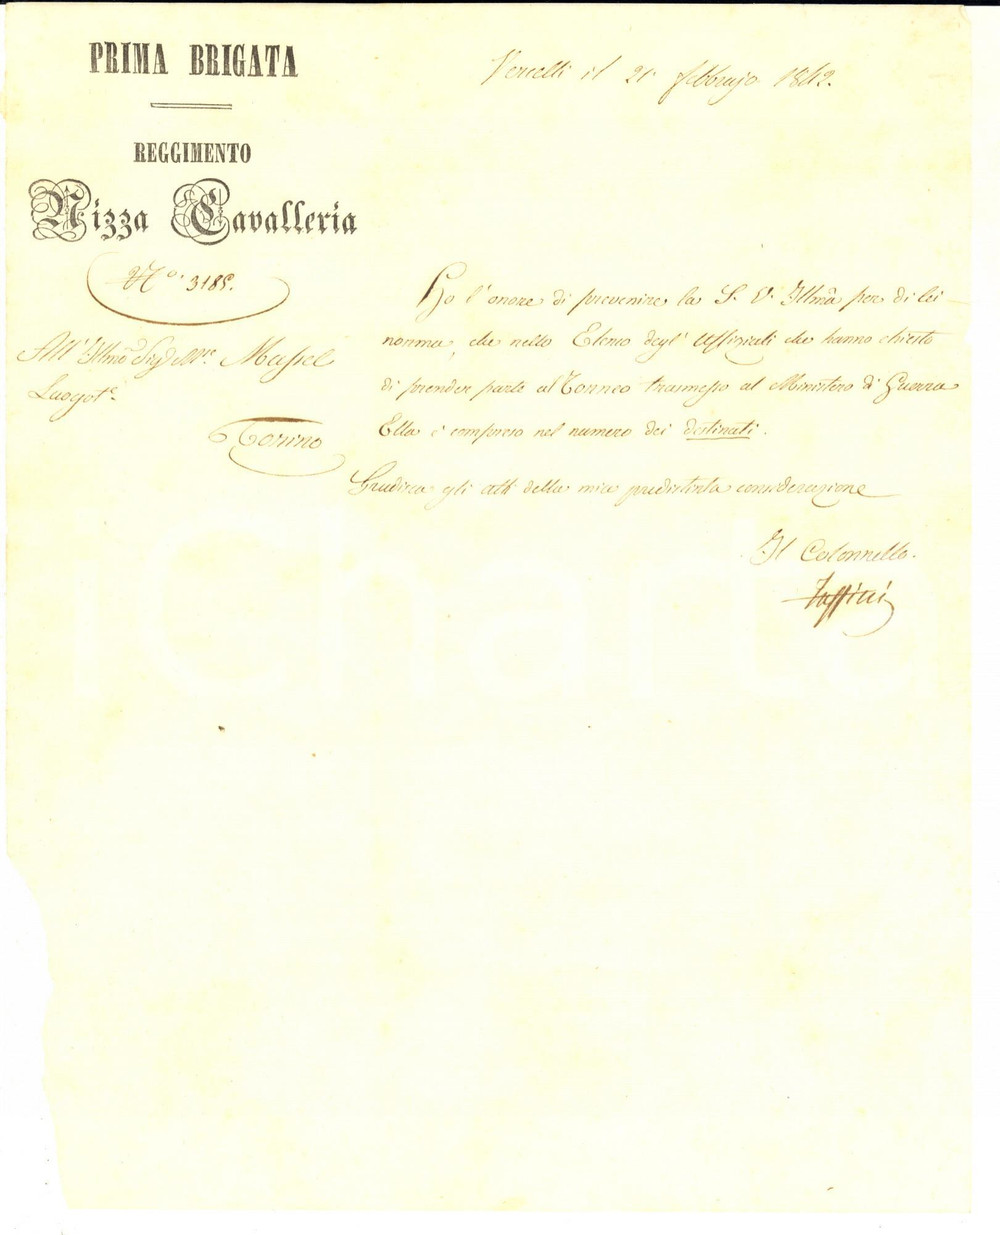 PRIMA BRIGATA
REGGIMENTO
Nizza Cavalleria
N.º 3185.
Vercelli il 21 febbrajo 1842.
All' Illmo Sigr Mse Massel
Luogote
Torino
Ho l'onore di prevenire la S. V. Illma per di lei
norma, che nello Elenco degl' Uffiziali che hanno chiesto
di prender parte al Torneo trasmesso al Ministero di Guerra
Ella è compreso nel numero dei destinati.
Gradisca gli atti della mia predistinta considerazione
Il Colonnello.
Taffini
iCharta